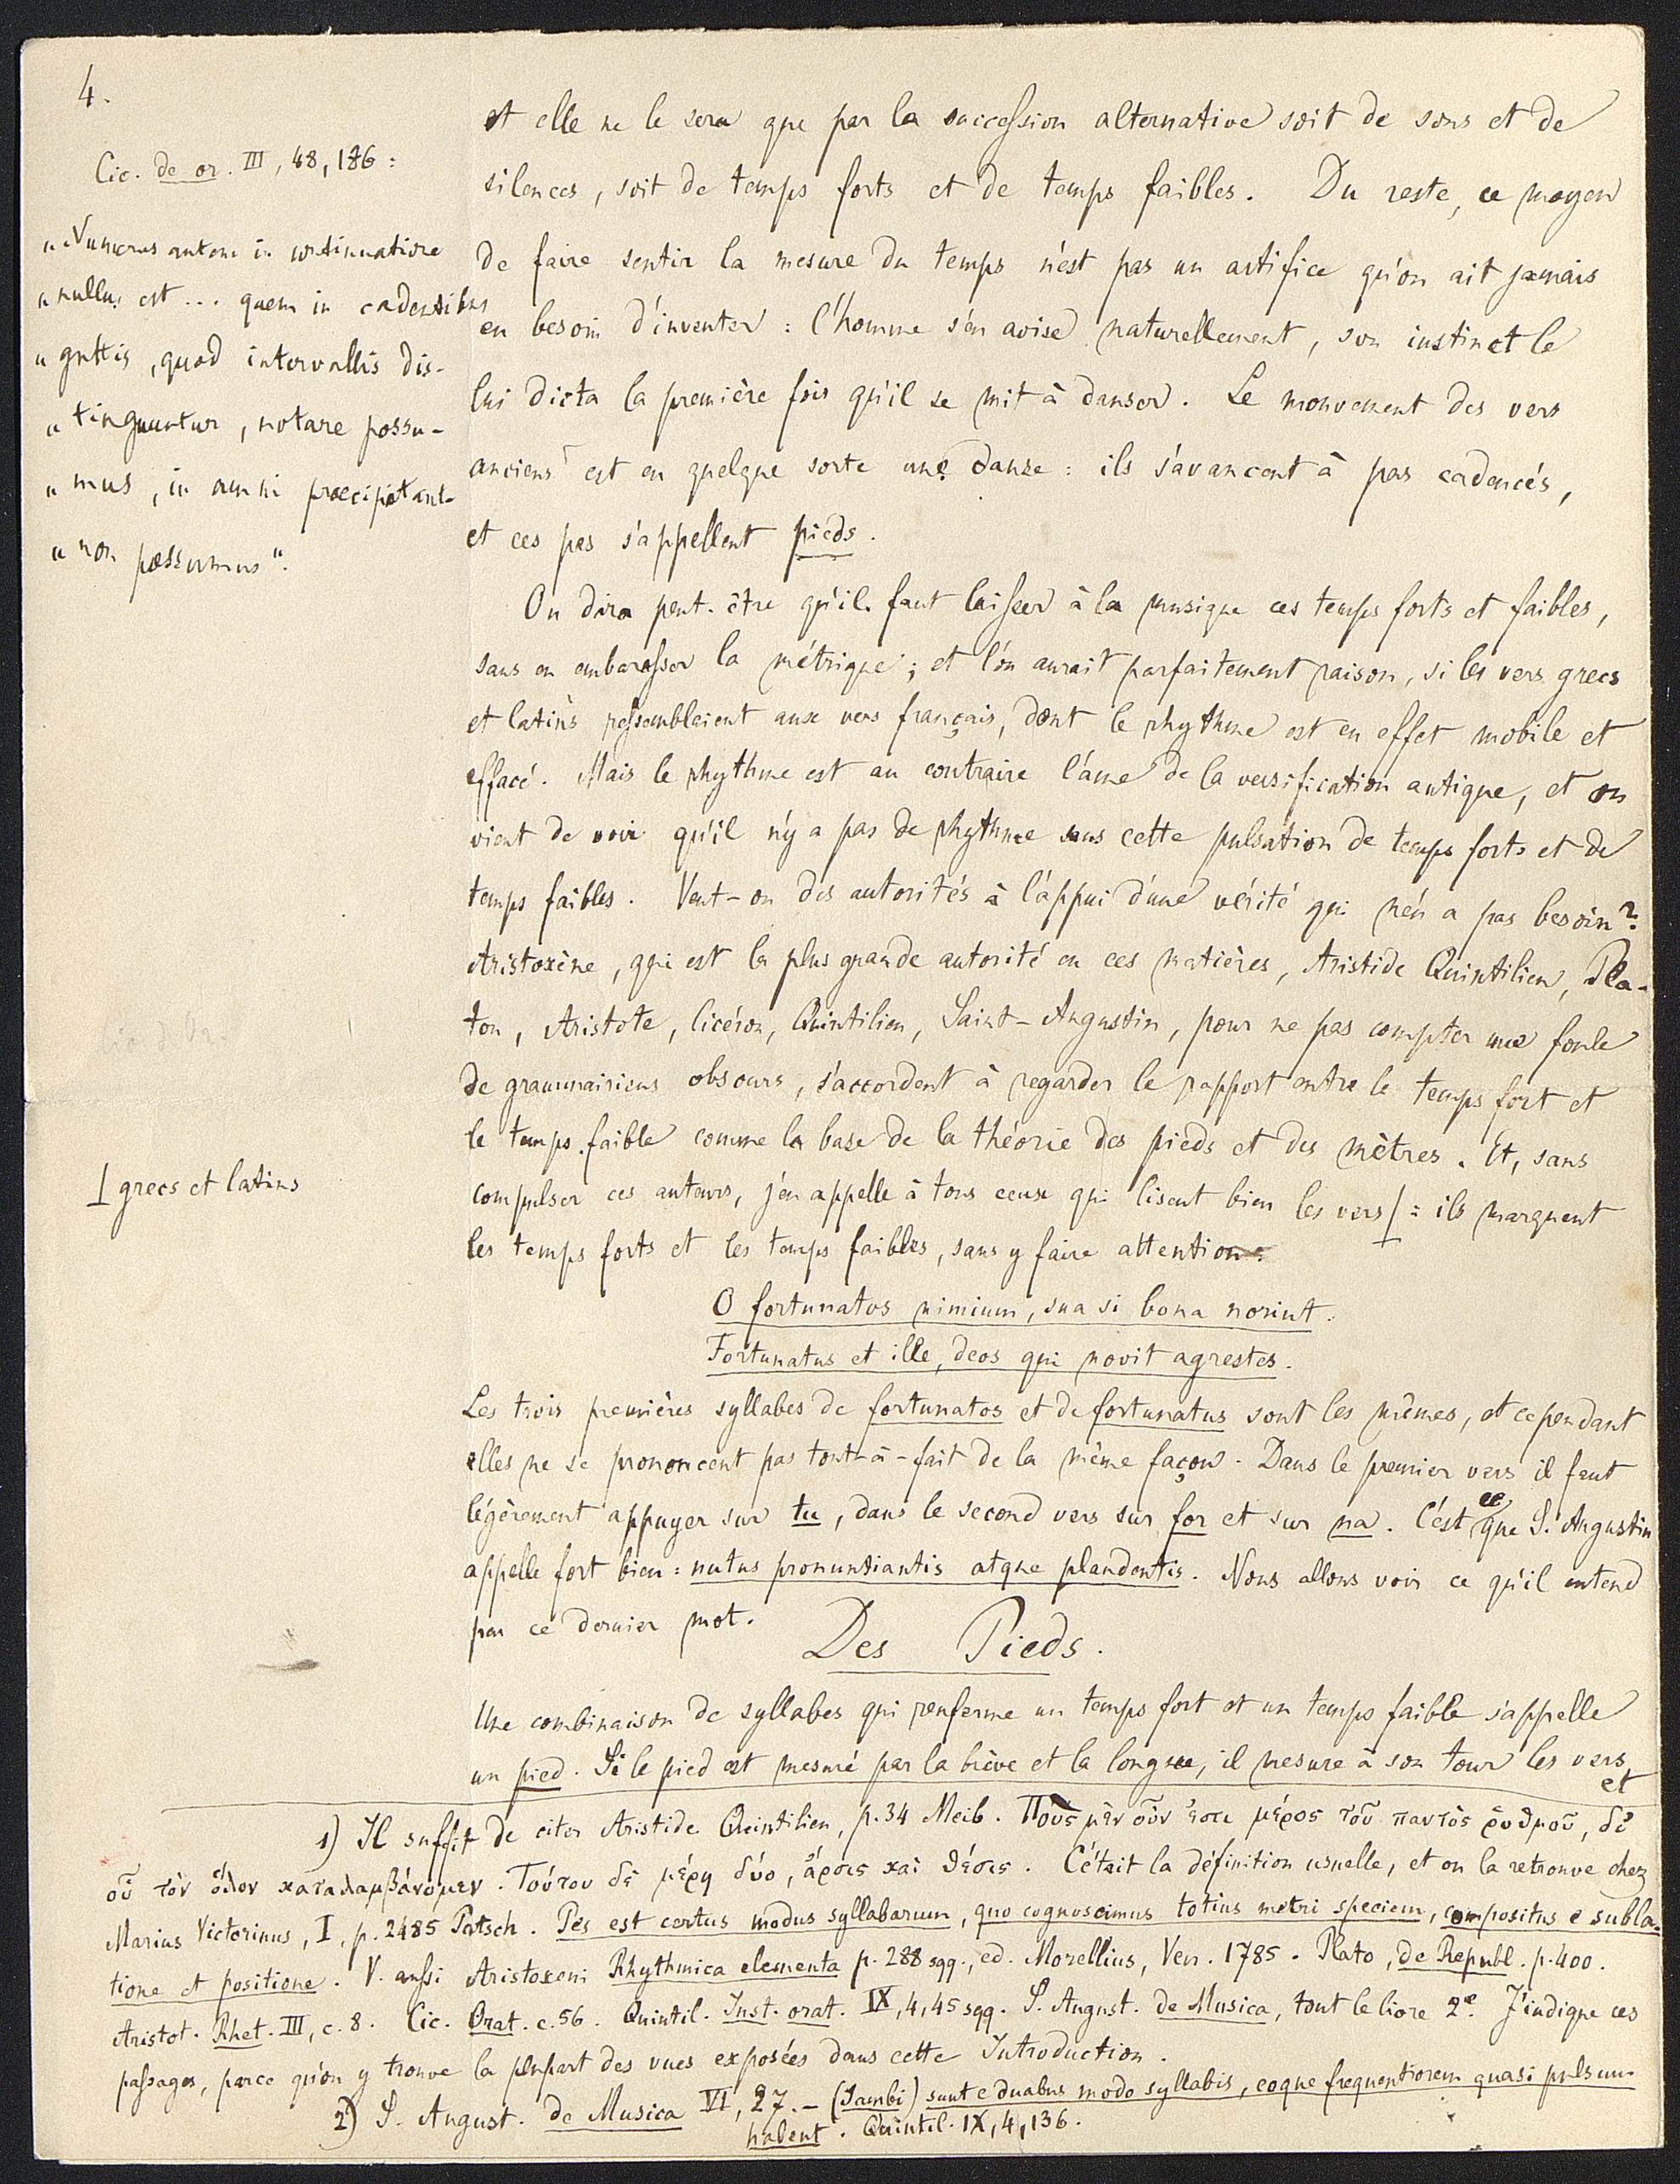 4.
Cic. de or. III, 48, 186 :
„Numerus autem in continuatione
„nullus est ... quem in cadentibus
„guttis, quod intervallis dis-
„tinguuntur, notare possu-
„mus, in amni praecipitant-
„non possumus“.
et elle ne le sera que par la succession alternative soit de sons et de
silences, soit de temps forts et de temps faibles. Du reste, ce moyen
de faire sentir la mesure du temps n'est pas un artifice qu'on ait jamais
eu besoin d'inventer : l'homme s'en avise naturellement, son instinct le
lui dicta la première fois qu'il se mit à danser. Le mouvement des vers
anciens est en quelque sorte une danse : ils s'avancent à pas cadencés,
et ces pas s'appellent pieds.
On dira peut-être qu'il faut laisser à la musique ces temps forts et faibles,
sans en embarasser la métrique ; et l'on aurait parfaitement raison, si les vers grecs
et latins ressemblaient aux vers français, dont le rhythme est en effet mobile et
effacé. Mais le rhythme est au contraire l'âme de la versification antique, et on
vient de voir qu'il n'y a pas de rhythme sans cette pulsation de temps forts et de
temps faibles. Veut-on des autorités à l'appui d'une vérité qui n'en a pas besoin ?
Aristoxène, qui est la plus grande autorité en ces matières, Aristide Quintilien, Pla-
ton, Aristote, Cicéron, Quintilien, Saint-Augustin, pour ne pas compter une foule
de grammairiens obscurs, s'accordent à regarder le rapport entre le temps fort et
le temps faible comme la base de la théorie des pieds et des mètres. Et, sans
compulser ces auteurs, j'en appelle à tous ceux qui lisent bien les vers ⊥ : ils marquent
⊥ grecs et latins
les temps forts et les temps faibles, sans y faire attention.
O fortunatos nimium, sua si bona norint.
Fortunatus et ille, deos qui novit agrestes.
Les trois premières syllabes de fortunatos et de fortunatus sont les mêmes, et cependant
elles ne se prononcent pas tout-à-fait de la même façon. Dans le premier vers il faut
légèrement appuyer sur tu, dans le second vers sur for et sur na. C'est ce que S. Augustin
appelle fort bien : nutus pronuntiantis atque plaudentis. Nous allons voir ce qu'il entend
par ce dernier mot.
Des Pieds.
Une combinaison de syllabes qui renferme un temps fort et un temps faible s'appelle
un pied. Si le pied est mesuré par la brève et la longue, il mesure à son tour les vers,
et
1) Il suffit de citer Aristide Quintilien, p. 34 Meib. Ποὺς μὲν οὖν ἐστι μέρος τοῦ παντὸς ῥυθμοῦ, δι'
οὗ τὸν ὅλον καταλαμβάνομεν. Τούτου δὲ μέρη δύο, ἄρσις καὶ θέσις. C'était la définition usuelle, et on la retrouve chez
Marius Victorinus, I, p. 2485 Putsch. Pes est certus modus syllabarum, quo cognoscimus totius metri speciem, compositus e subla-
tione et positione. V. aussi Aristoxeni Rhythmica elementa p. 288 sqq., ed. Morellius, Ven. 1785. Plato, de Republ. p. 400.
Aristot. Rhet. III, c. 8. Cic. Orat. c. 56. Quintil. Inst. orat. IX, 4, 45 sqq. S. August. de Musica, tout le livre 2e. J'indique ces
passages, parce qu'on y trouve la plupart des vues exposées dans cette Introduction.
2) S. August. de Musica VI, 27. – (Iambi) sunt e duabus modo syllabis, eoque frequentiorem quasi pulsum
habent. Quintil. IX, 4, 136.